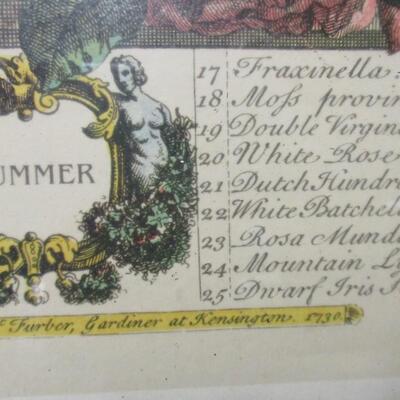 UMMER
17 Fraxinella
18 Moss provin
19 Double Virgin
20 White Rose
21 Dutch Hundr
22 White Batchel
23 Rosa Mund
24 Mountain Ly
25 Dwarf Iris
Furber, Gardiner at Kensington. 1730.